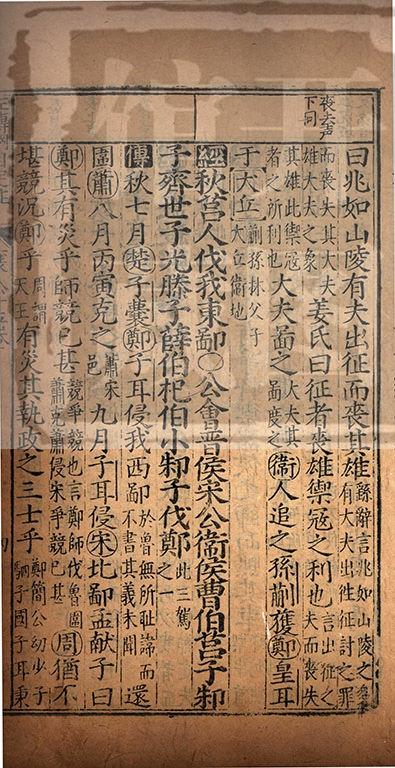 喪去声
下同
曰兆如山陵有夫出征而喪其雄繇辭言兆如山陵之有大夫出徃征討之罪
而喪失其大夫雄大夫之象姜氏曰征者喪雄禦寇之利也言出征之夫而喪失
其雄此禦冦者之所利也大夫啚之大夫其啚度之衞人追之孫蒯獲鄭皇耳
于犬丘蒯孫林父子犬丘衞地
經秋莒人伐我東鄙○公會晋侯宋公衞侯曹伯莒子邾
子齊世子光滕子薛伯杞伯小邾子伐鄭此三駕之一
傳秋七月楚子囊鄭子耳侵我西鄙於魯無所耻諱而不書其義未聞還
圍蕭八月丙寅克之蕭宋邑九月子耳侵宋北鄙孟献子曰
鄭其有灾乎師競已甚競爭競也言鄭師伐魯圍蕭克蕭侵宋爭競已甚周猶不
堪競況鄭乎周謂天王有灾其執政之三士乎鄭簡公幼少子駟子國子耳秉